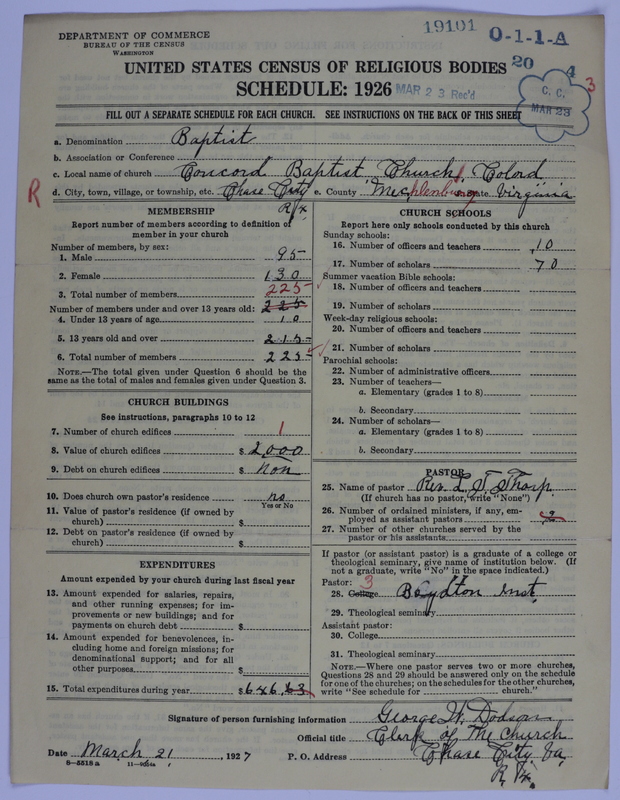 19101 O-1-1-A
DEPARTMENT OF COMMERCE
BUREAU OF THE CENSUS
WASHINGTON
UNITED STATES CENSUS OF RELIGIOUS BODIES
20 4
SCHEDULE: 1926 MAR 23 Rec'd
C. C.
MAR 23
3
FILL OUT A SEPARATE SCHEDULE FOR EACH CHURCH. SEE INSTRUCTIONS ON THE BACK OF THIS SHEET
a. Denomination Baptist
b. Association or Conference
c. Local name of church Concord Baptist Church, Colord
R
d. City, town, village, or township, etc. Chase City e. County Mecklenburg State Virginia
MEMBERSHIP
Report number of members according to definition of member in your church
Number of members, by sex:
1. Male 95
2. Female 130
3. Total number of members 225
Number of members under and over 13 years old: 225
4. Under 13 years of age 10
5. 13 years old and over 215
6. Total number of members 225
NOTE.—The total given under Question 6 should be the
same as the total of males and females given under Question 3.
CHURCH BUILDINGS
See instructions, paragraphs 10 to 12
7. Number of church edifices 1
8. Value of church edifices $ 2000
9. Debt on church edifices $ non
10. Does church own pastor's residence no
Yes or No
11. Value of pastor's residence (if owned by
church) $
12. Debt on pastor's residence (if owned by
church) $
EXPENDITURES
Amount expended by your church during last fiscal year
13. Amount expended for salaries, repairs,
and other running expenses; for im-
provements or new buildings; and for
payments on church debt $
14. Amount expended for benevolences, in-
cluding home and foreign missions; for
denominational support; and for all
other purposes $
15. Total expenditures during year $ 646.63
CHURCH SCHOOLS
Report here only schools conducted by this church
Sunday schools:
16. Number of officers and teachers 10
17. Number of scholars 70
Summer vacation Bible schools:
18. Number of officers and teachers
19. Number of scholars
Week-day religious schools:
20. Number of officers and teachers
21. Number of scholars
Parochial schools:
22. Number of administrative officers
23. Number of teachers—
a. Elementary (grades 1 to 8)
b. Secondary
24. Number of scholars—
a. Elementary (grades 1 to 8)
b. Secondary
PASTOR
25. Name of pastor Rev. L. T. Tharp
(If church has no pastor, write "None")
26. Number of ordained ministers, if any, em-
ployed as assistant pastors 2
27. Number of other churches served by the
pastor or his assistants
If pastor (or assistant pastor) is a graduate of a college or
theological seminary, give name of institution below. (If
not a graduate, write "No" in the space indicated.)
Pastor: 3
28. College Boydton Inst.
29. Theological seminary
Assistant pastor:
30. College
31. Theological seminary
NOTE.—Where one pastor serves two or more churches,
Questions 28 and 29 should be answered only on the schedule
for one of the churches; on the schedules for the other churches,
write "See schedule for church."
Signature of person furnishing information George W. Dodson
Official title Clerk of The Church
Date March 21, 1927 P. O. Address Chase City Va.
8-5518a